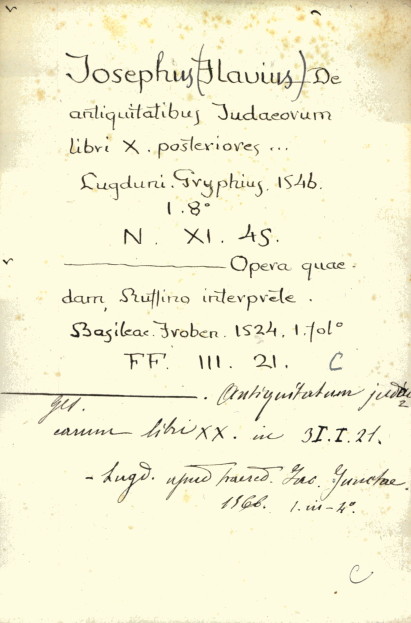 Josephus (Flavius) De
antiquitatibus Judaeorum
libri X. posteriores ...
Lugduni. Gryphius. 1546.
1. 8°
N. XI. 45.
——— Opera quae-
dam, Ruffino interprete.
Basileae. Froben. 1524. 1. fol°
FF. III. 21. C
———. Antiquitatum judai
carum libri XX. in 31.I.21.
- Lugd. apud haered. Jac. Junctae.
1566. 1. in-4°.
C